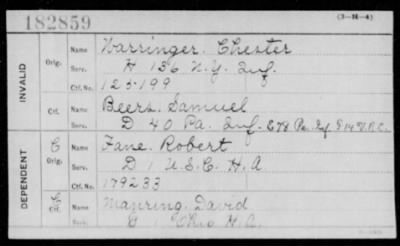 182859
(3—H—4)
INVALID
Orig.
Name Warringer. Chester
Serv. H 136 N.Y. Inf.
Ctf. No. 125-199
Ctf.
Name Beers. Samuel
Serv. D 40 Pa. Inf. E 78 Pa. Inf
DEPENDENT
C
Orig.
Name Fane. Robert
Serv. D 1 U.S.C. H.A
Ctf. No. 179233
C
Ctf.
Name Manring. David
Serv. 1 Ohio H.A.